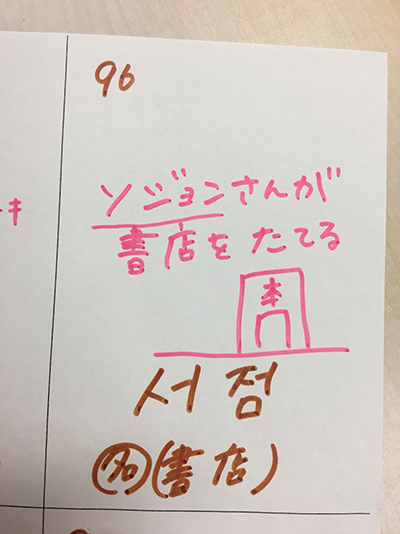 96
ソジョンさんが
書店をたてる
本
서점
名(書店)
キ